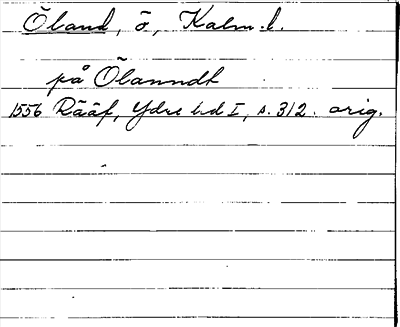 Öland, ö, Kalm. l.
på Ölanndt
1556 Rääf, Ydre hd I, s. 312. orig.